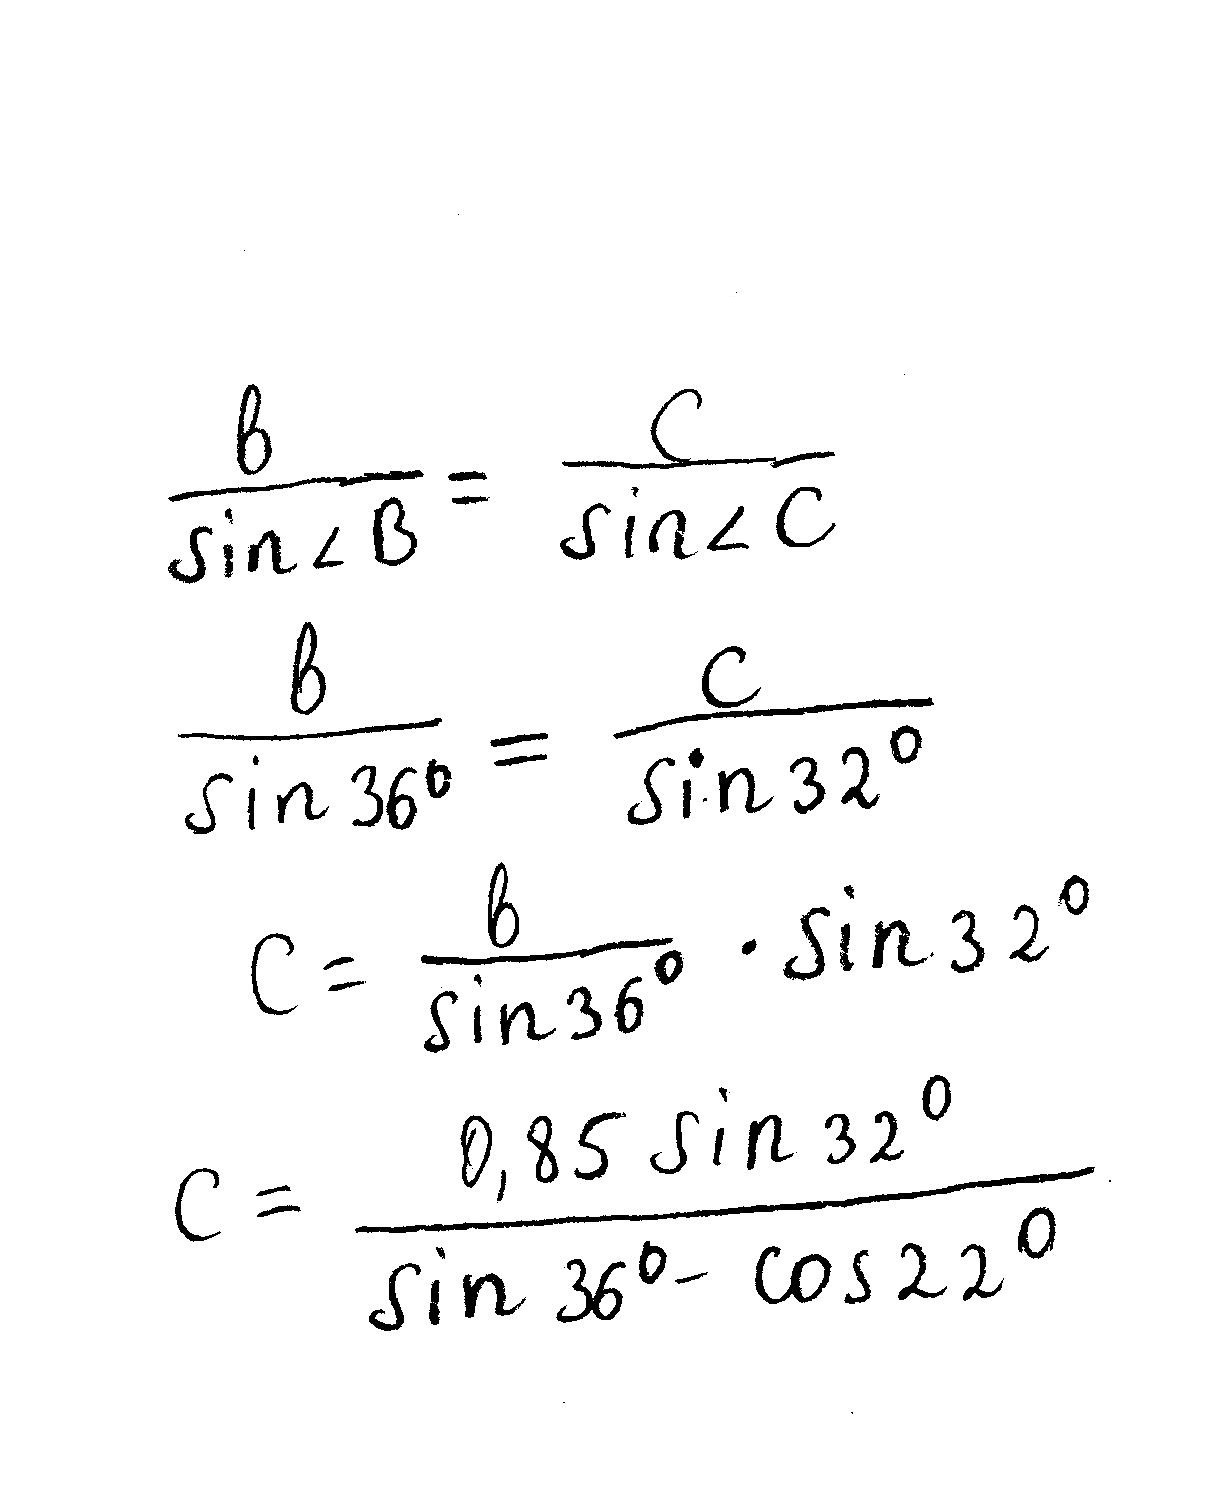 b/sin∠B = c/sin∠C
b/sin36° = c/sin32°
c = b/sin36° · sin32°
c = 0,85 sin32°/sin36° - cos22°